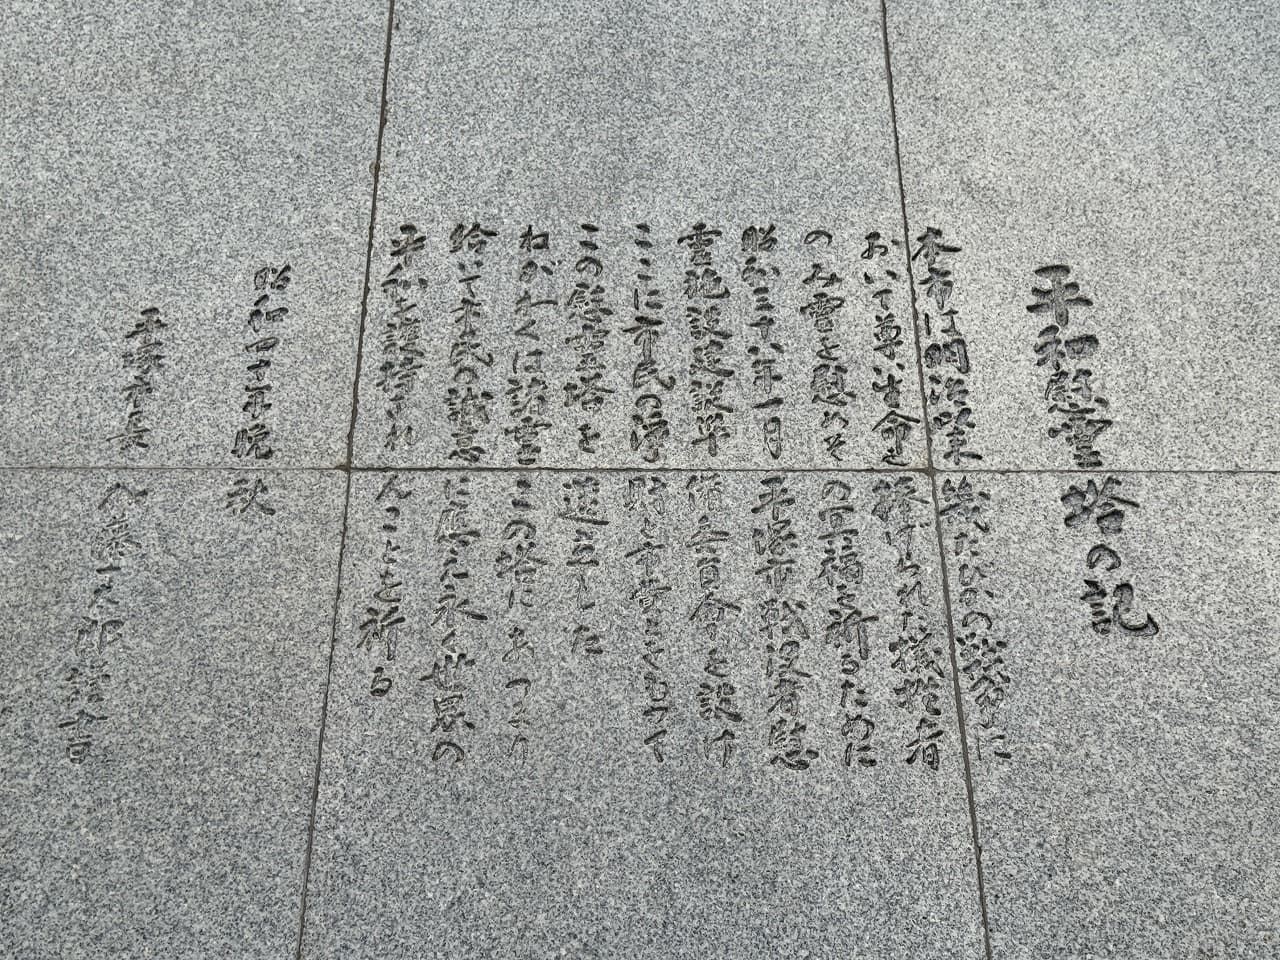 平和慰霊塔の記
本市は明治以来幾たびかの戦役に
おいて尊い生命を捧げられた犠牲者
のみ霊を慰めその冥福を祈るために
昭和三十八年一月平塚市戦没者慰
霊施設建設準備委員会を設け
ここに市民の浄財と市費とをもって
この慰霊塔を建立した
ねがわくは諸霊この塔にあつまり
給いて市民の誠意に応え永く世界の
平和を護持されんことを祈る
昭和四十年晩秋
平塚市長 加藤一太郎